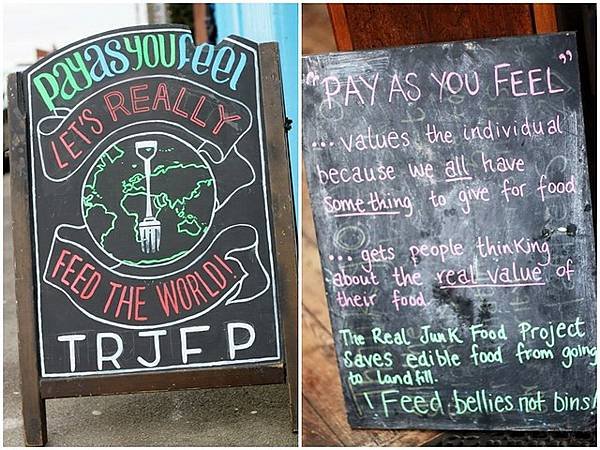 PAY AS YOU FEEL
LET'S REALLY
FEED THE WORLD!
TRJFP
"PAY AS YOU FEEL"
... values the individual
because we all have
something to give for food
... gets people thinking
about the real value of
their food
The Real Junk Food Project
Saves edible food from going
to landfill.
! Feed bellies not bins!